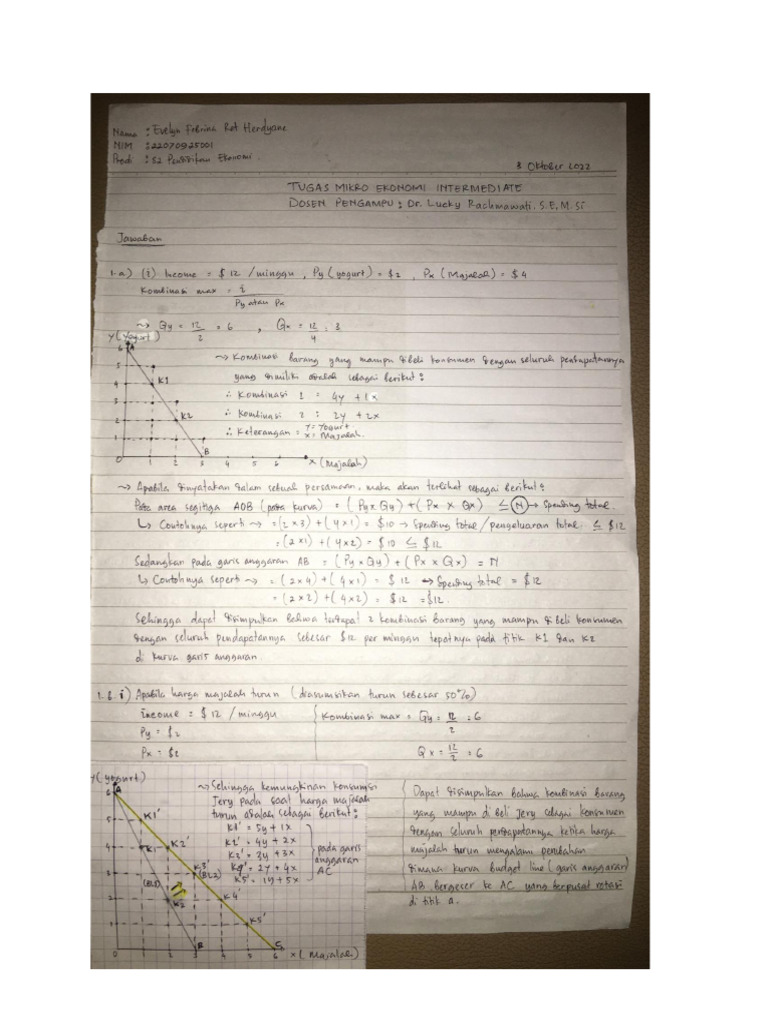 Nama : Evelyn Febrina Rot Herdyane
NIM : 22070925001
Prodi : S2 Pendidikan Ekonomi
8 Oktober 2022
TUGAS MIKRO EKONOMI INTERMEDIATE
DOSEN PENGAMPU : Dr. Lucky Rachmawati, S.E, M.Si
Jawaban
1.a) (i) Income = $ 12 / minggu , Py (yogurt) = $ 2 , Px (Majalah) = $ 4
Kombinasi max = i
Py atau Px
~> Qy = 12 = 6 , Qx = 12 = 3
2 4
Y (Yogurt)
6 A
5
4 K1
3
2 K2
1 B
0 1 2 3 4 5 6 X (Majalah)
~> Kombinasi barang yang mampu dibeli konsumen dengan seluruh pendapatannya
yang dimiliki adalah sebagai berikut :
∴ Kombinasi 1 = 4y + 1x
∴ Kombinasi 2 : 2y + 2x
∴ Keterangan = Y = Yogurt
X = Majalah.
~> Apabila dinyatakan dalam sebuah persamaan, maka akan terlihat sebagai berikut :
Pada area segitiga AOB (pada kurva) = (Py x Qy) + (Px x Qx) ≤ N → Spending total.
↳ Contohnya seperti ~> = (2 x 3) + (4 x 1) = $ 10 → Spending total / pengeluaran total ≤ $ 12
= (2 x 1) + (4 x 2) = $ 10 ≤ $ 12
Sedangkan pada garis anggaran AB = (Py x Qy) + (Px x Qx) = N
↳ Contohnya seperti ~> = (2 x 4) + (4 x 1) = $ 12 → Spending total = $ 12
= (2 x 2) + (4 x 2) = $ 12 = $ 12.
Sehingga dapat disimpulkan bahwa terdapat 2 kombinasi barang yang mampu dibeli konsumen
dengan seluruh pendapatannya sebesar $ 12 per minggu tepatnya pada titik K1 dan K2
di kurva garis anggaran.
1.b i) Apabila harga majalah turun (diasumsikan turun sebesar 50%)
income = $ 12 / minggu
Py = $ 2
Px = $ 2
Kombinasi max = Qy = 12 = 6
2
Qx = 12 = 6
2
Y (yogurt)
6 A
5 K1'
4 K1 K2'
3 (BL1) K3' (BL2)
2 K2 K4'
1 K5'
0 1 2 B 3 4 5 6 C
X (Majalah)
~> Sehingga kemungkinan konsumsi
Jery pada saat harga majalah
turun adalah sebagai berikut :
K1' = 5y + 1x
K2' = 4y + 2x
K3' = 3y + 3x
K4' = 2y + 4x
K5' = 1y + 5x
pada garis
anggaran
AC
Dapat disimpulkan bahwa kombinasi barang
yang mampu di beli Jery sebagai konsumen
dengan seluruh pendapatannya ketika harga
majalah turun mengalami perubahan
dimana kurva budget line (garis anggaran)
AB bergeser ke AC yang berpusat rotasi
di titik a.